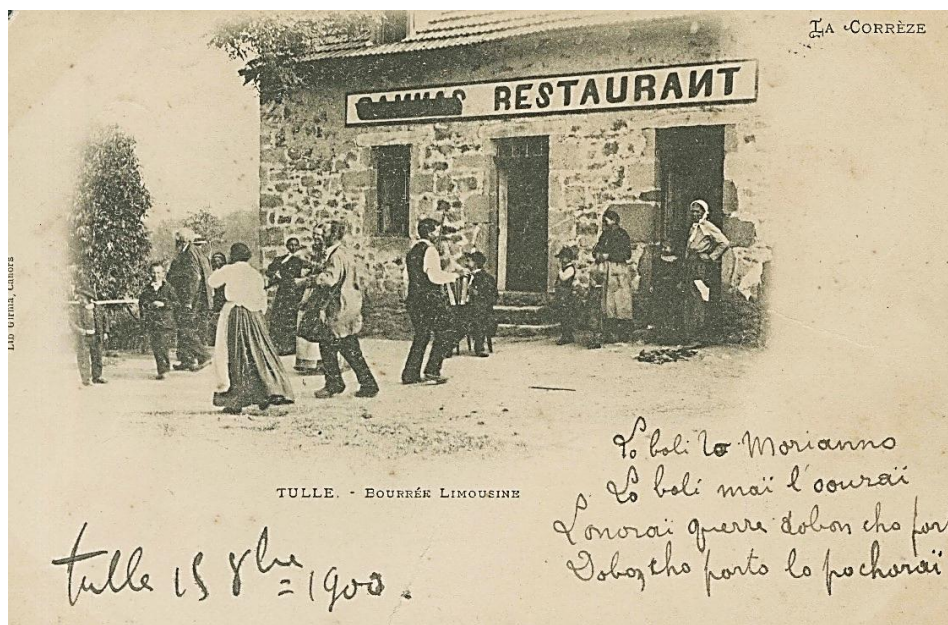 LA CORRÈZE
RESTAURANT
Lib Girma, Cahors
TULLE. - BOURRÉE LIMOUSINE
Lo boli lo Morianno
Lo boli maï l'ouraï
L'onoraï querre dobon cho por
Dobon cho porto lo pochoraï
Tulle 15 8bre = 1900.